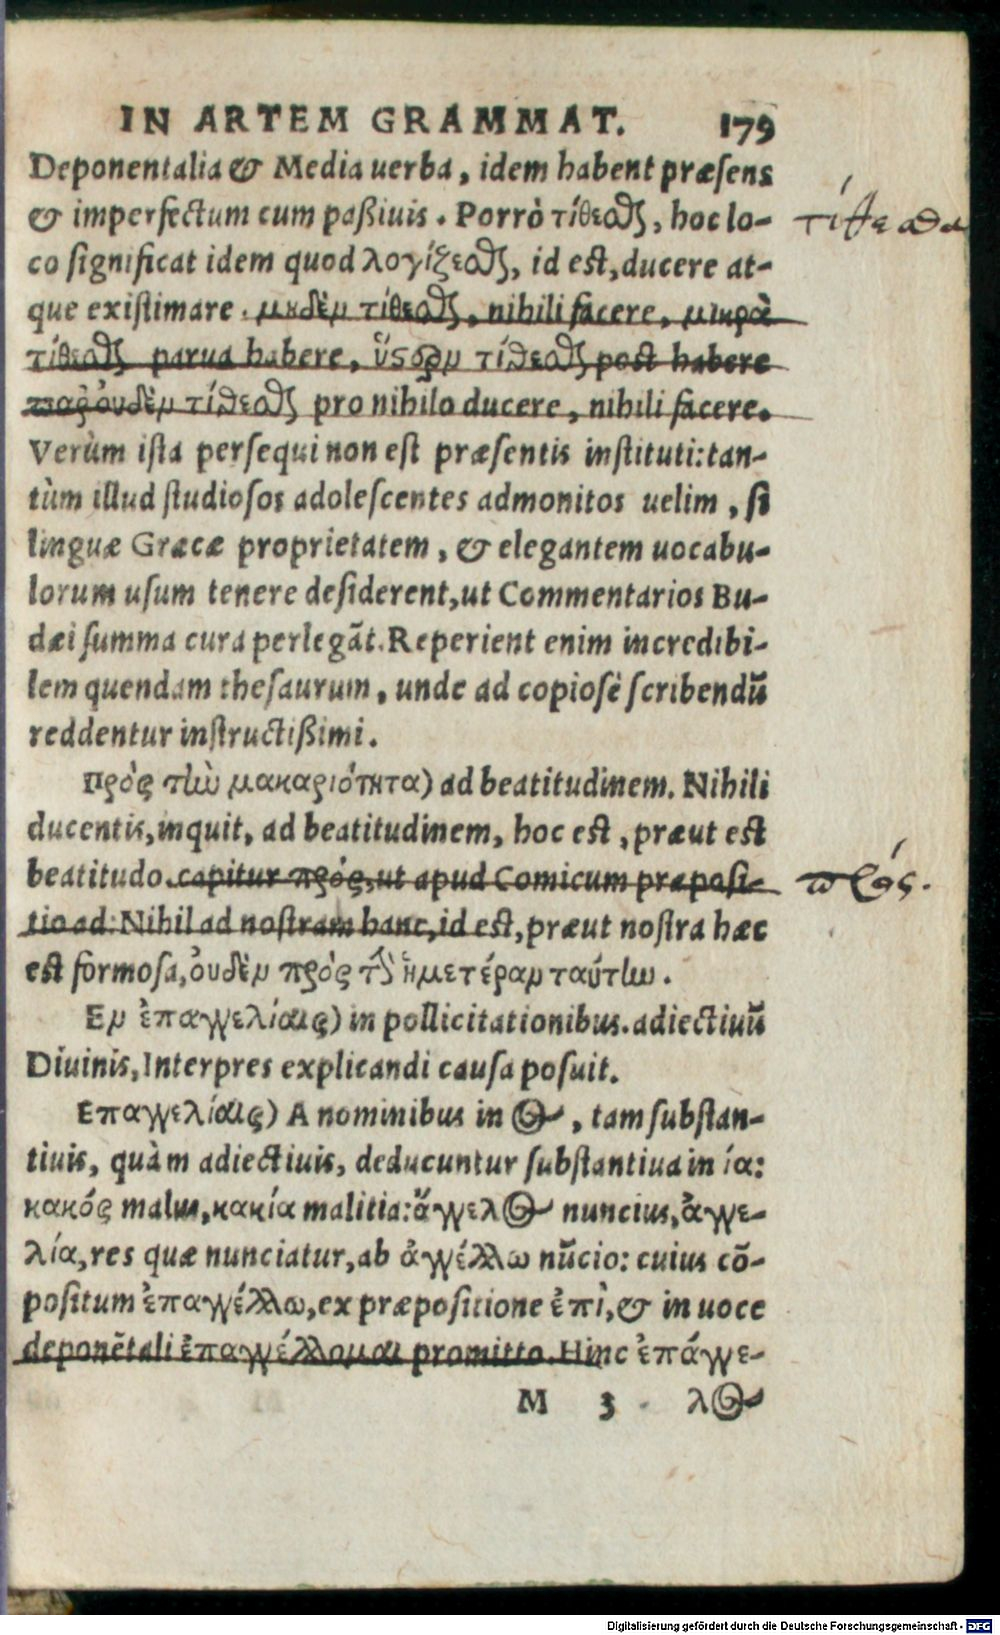 IN ARTEM GRAMMAT. 179
Deponentalia & Media uerba, idem habent præsens
& imperfectum cum paßiuis. Porrò τίθεσθαι, hoc lo-
τίθεσθαι
co significat idem quod λογίζεσθαι, id est, ducere at-
que existimare. μηδὲν τίθεσθαι, nihili facere, μικρὰ
τίθεσθαι parua habere, ὕστερον τίθεσθαι post habere
παρ᾽ οὐδὲν τίθεσθαι pro nihilo ducere, nihili facere.
Verùm ista persequi non est præsentis instituti: tan-
tùm illud studiosos adolescentes admonitos uelim, si
linguæ Græcæ proprietatem, & elegantem uocabu-
lorum usum tenere desiderent, ut Commentarios Bu-
dæi summa cura perlegãt. Reperient enim incredibi-
lem quendam thesaurum, unde ad copiosè scribendũ
reddentur instructißimi.
Πρὸς τὴν μακαριότητα) ad beatitudinem. Nihili
ducentis, inquit, ad beatitudinem, hoc est, præut est
beatitudo. capitur πρός, ut apud Comicum præposi-
πρός.
tio ad: Nihil ad nostram hanc, id est, præut nostra hæc
est formosa, οὐδὲν πρὸς τὴν ἡμετέραν ταύτην.
Εν ἐπαγγελίαις) in pollicitationibus. adiectiuũ
Diuinis, Interpres explicandi causa posuit.
Επαγγελίαις) A nominibus in ος, tam substan-
tiuis, quàm adiectiuis, deducuntur substantiua in ία:
κακός malus, κακία malitia: ἄγγελος nuncius, ἀγγε-
λία, res quæ nunciatur, ab ἀγγέλλω nũcio: cuius cõ-
positum ἐπαγγέλλω, ex præpositione ἐπὶ, & in uoce
deponẽtali ἐπαγγέλλομαι promitto. Hinc ἐπάγγε-
M 3 λος
Digitalisierung gefördert durch die Deutsche Forschungsgemeinschaft - DFG